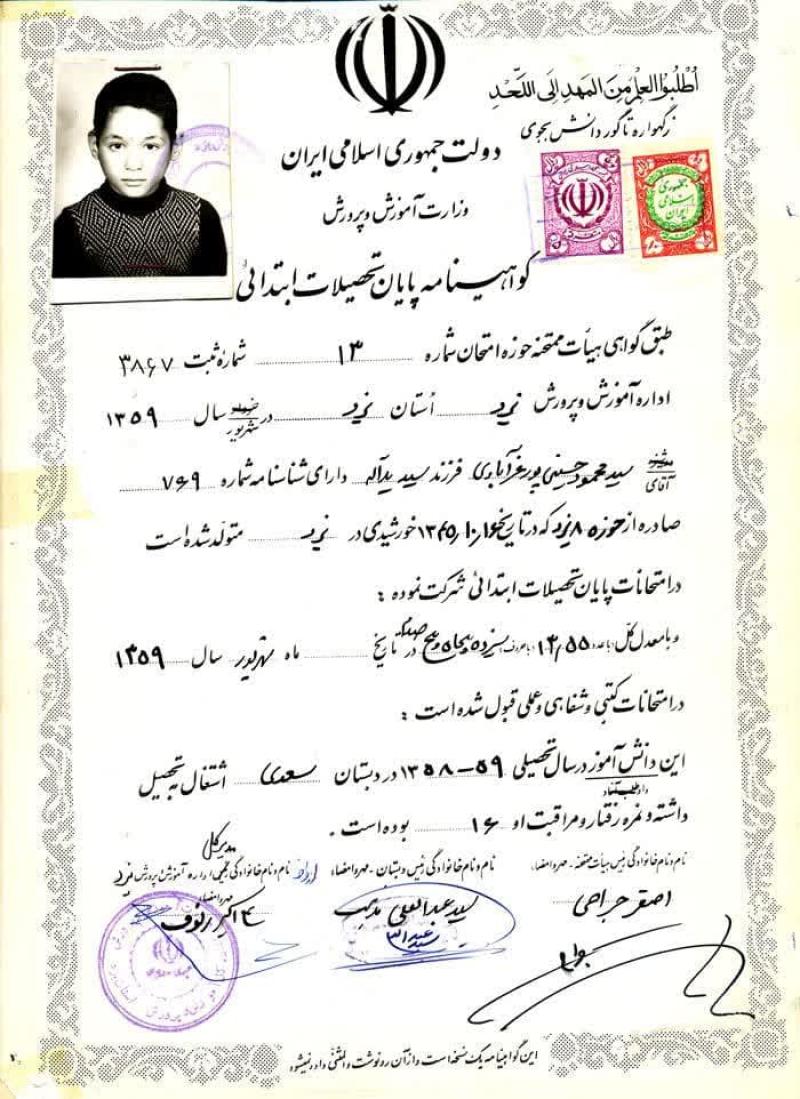 اُطْلُبُوا العِلْمَ مِنَ المَهدِ اِلَی اللَّحَدِ
زگهواره تا گور دانش بجوی
دولت جمهوری اسلامی ایران
وزارت آموزش و پرورش
جمهوری اسلامی ایران
گواهینامه پایان تحصیلات ابتدائی
طبق گواهی هیأت ممتحنه حوزه امتحان شماره ۱۳ شمارهٔ ثبت ۳۸۶۷
اداره آموزش و پرورش یزد اُستان یزد در خرداد شهریور سال ۱۳۵۹
آقای سید محمود حسینی پور فرزند سید یداله دارای شناسنامه شماره ۷۶۹
صادره از حوزه ۸ یزد که در تاریخ ۱۳۴۵/۱۰/۱۶ خورشیدی در یزد متولد شده است
در امتحانات پایان تحصیلات ابتدائی شرکت نموده :
و با معدل کل با عدد ۱۳/۵۵ با حروف سیزده و پنجاه و پنج صدم در تاریخ ماه شهریور سال ۱۳۵۹
در امتحانات کتبی و شفاهی و عملی قبول شده است :
این دانش آموز در سال تحصیلی ۵۹-۱۳۵۸ در دبستان سعدی اشتغال به تحصیل
داوطلب آزاد
داشته و نمره رفتار و مراقبت او ۱۶ بوده است .
مدیر کل
نام و نام خانوادگی رئیس هیأت ممتحنه - مهر و امضاء
نام و نام خانوادگی رئیس دبستان - مهر و امضاء
نام و نام خانوادگی اداره آموزش و پرورش یزد
مهر و امضاء
اصغر جراحی
سید عبدالعلی
این گواهینامه یک نسخه است و از آن رونوشت و المثنی داده نمیشود